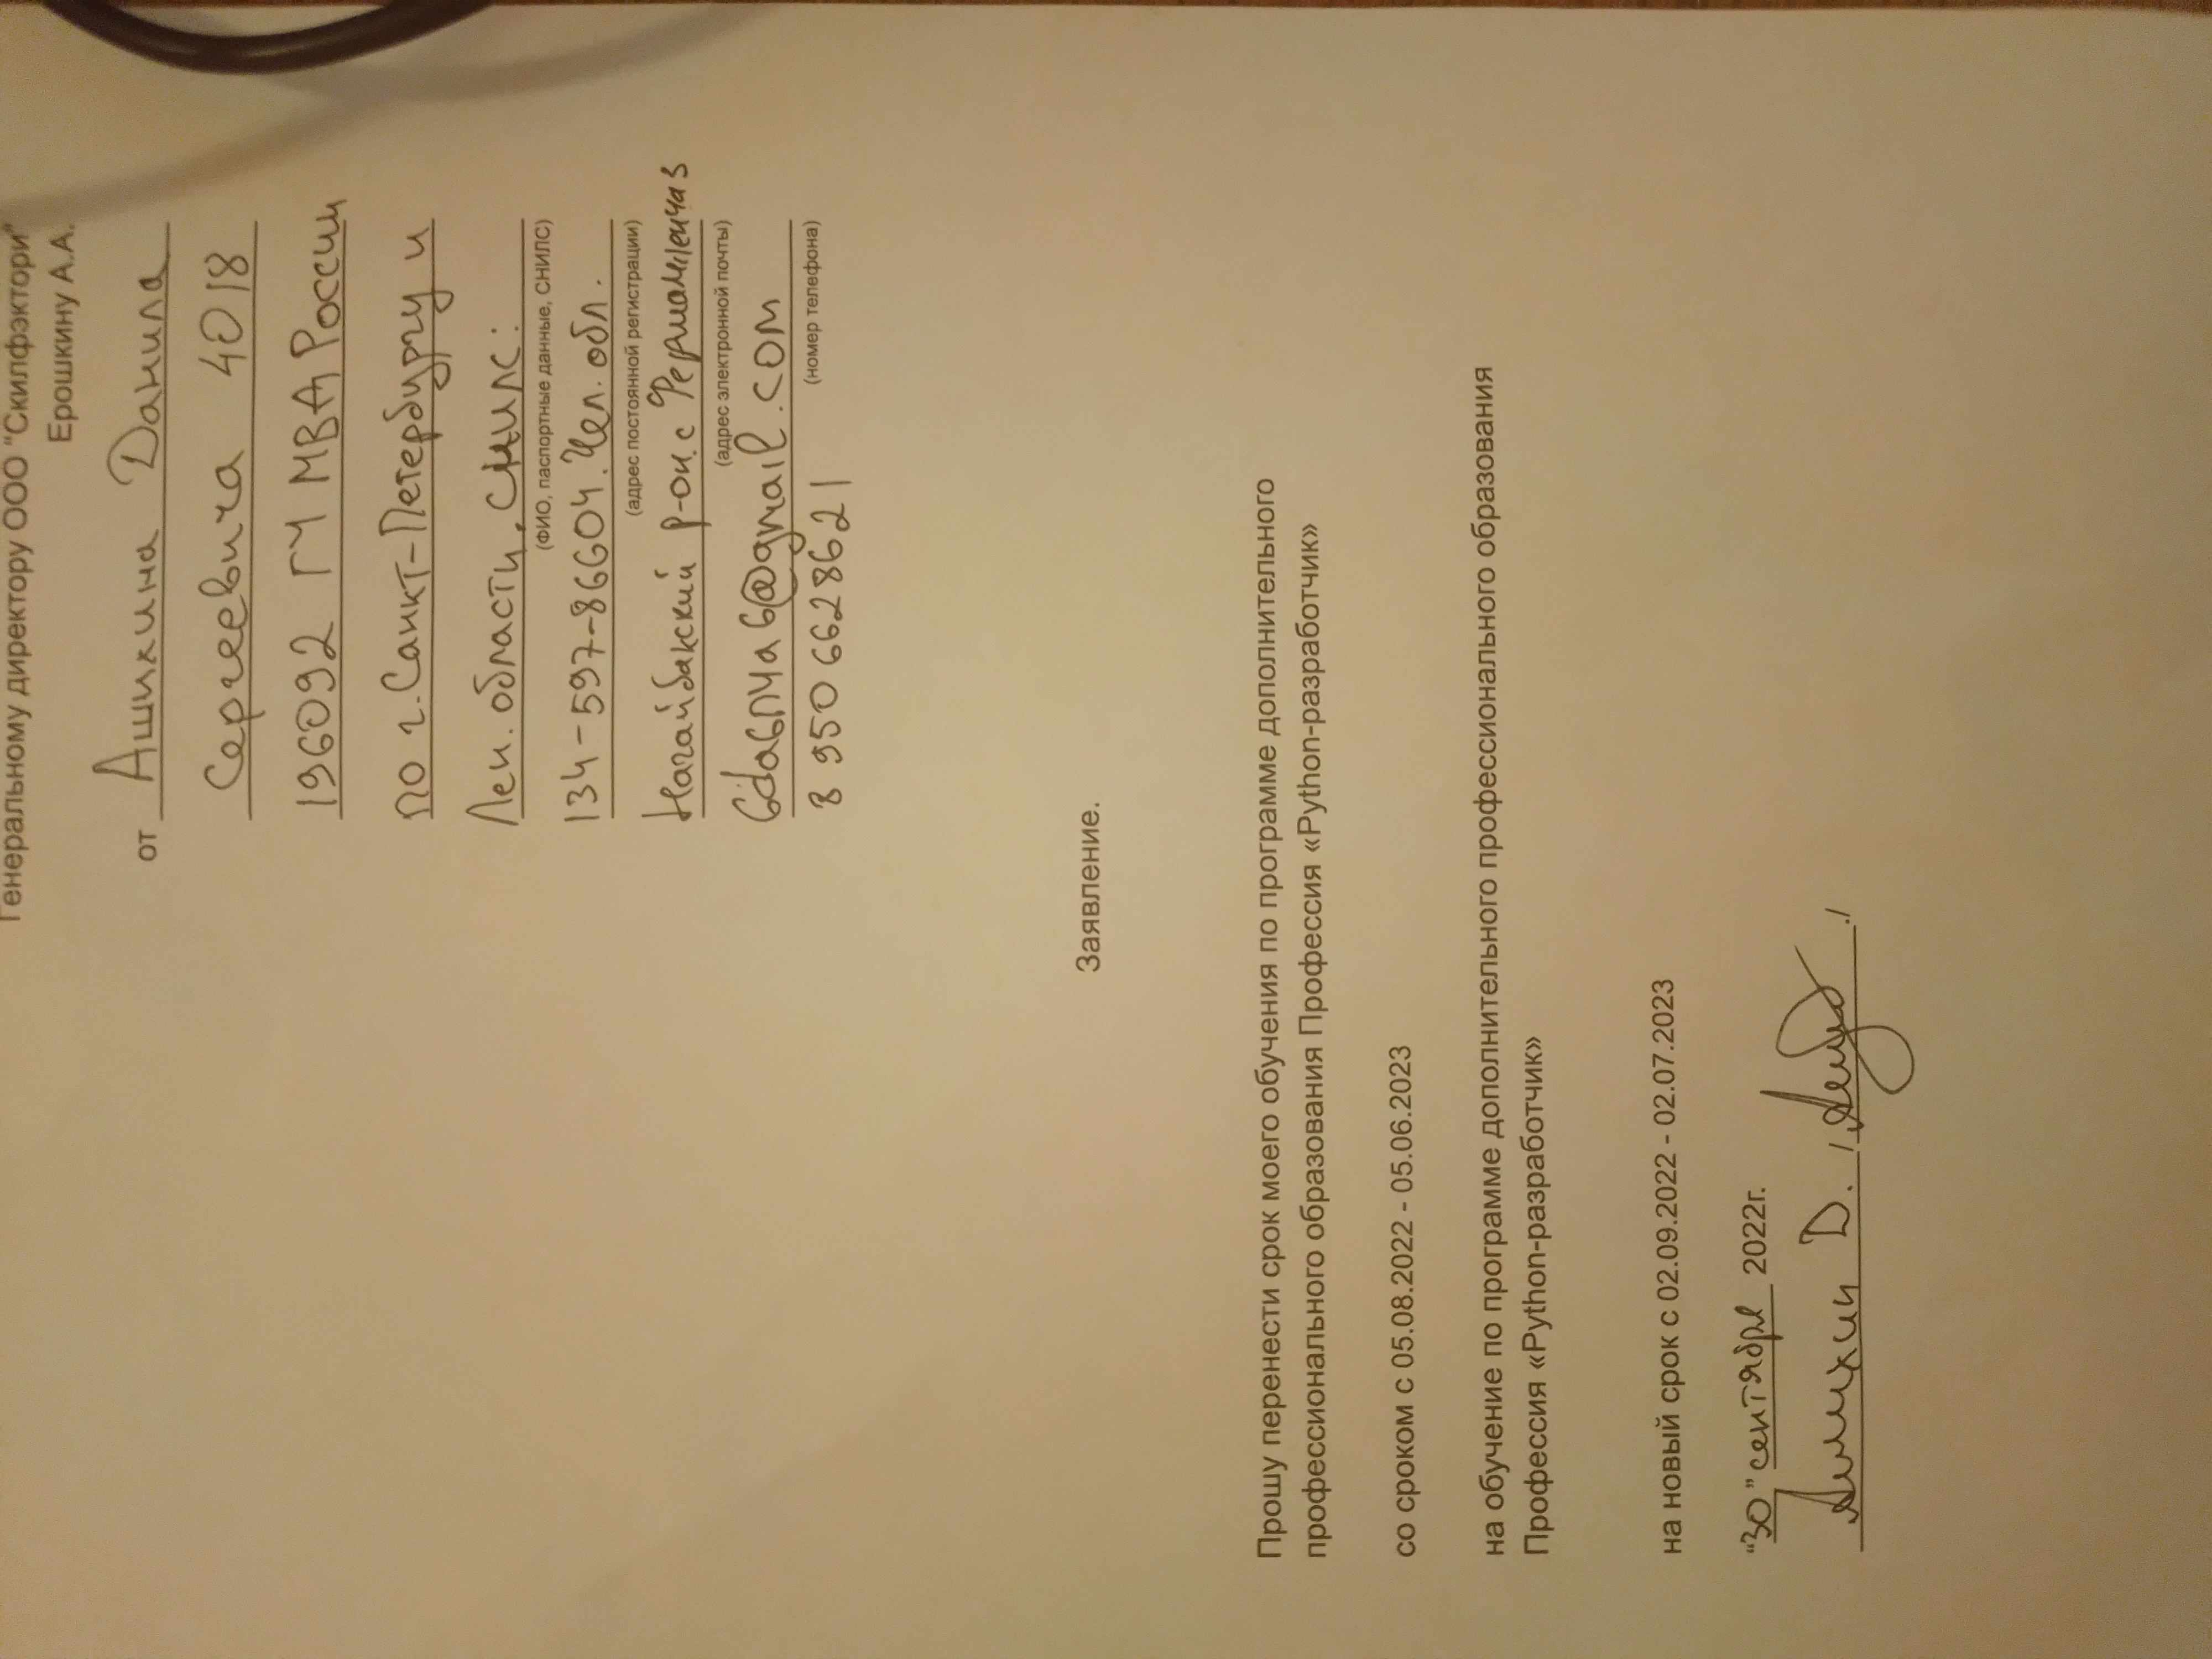 Генеральному директору ООО "Скилфэктори"
Ерошкину А.А.
от Ашихина Данила
Сергеевича 4018
196092 ГУ МВД России
по г. Санкт-Петербургу и
Лен. области. СНИЛС:
(ФИО, паспортные данные, СНИЛС)
134-597-86604. Чел. обл.
(адрес постоянной регистрации)
Нагайбакский р-он. с
(адрес электронной почты)
@gmail.com
(номер телефона)
8 950 6628621
Заявление.
Прошу перенести срок моего обучения по программе дополнительного
профессионального образования Профессия «Python-разработчик»
со сроком с 05.08.2022 - 05.06.2023
на обучение по программе дополнительного профессионального образования
Профессия «Python-разработчик»
на новый срок с 02.09.2022 - 02.07.2023
"30" сентября 2022г.
Ашихин Д. / ./